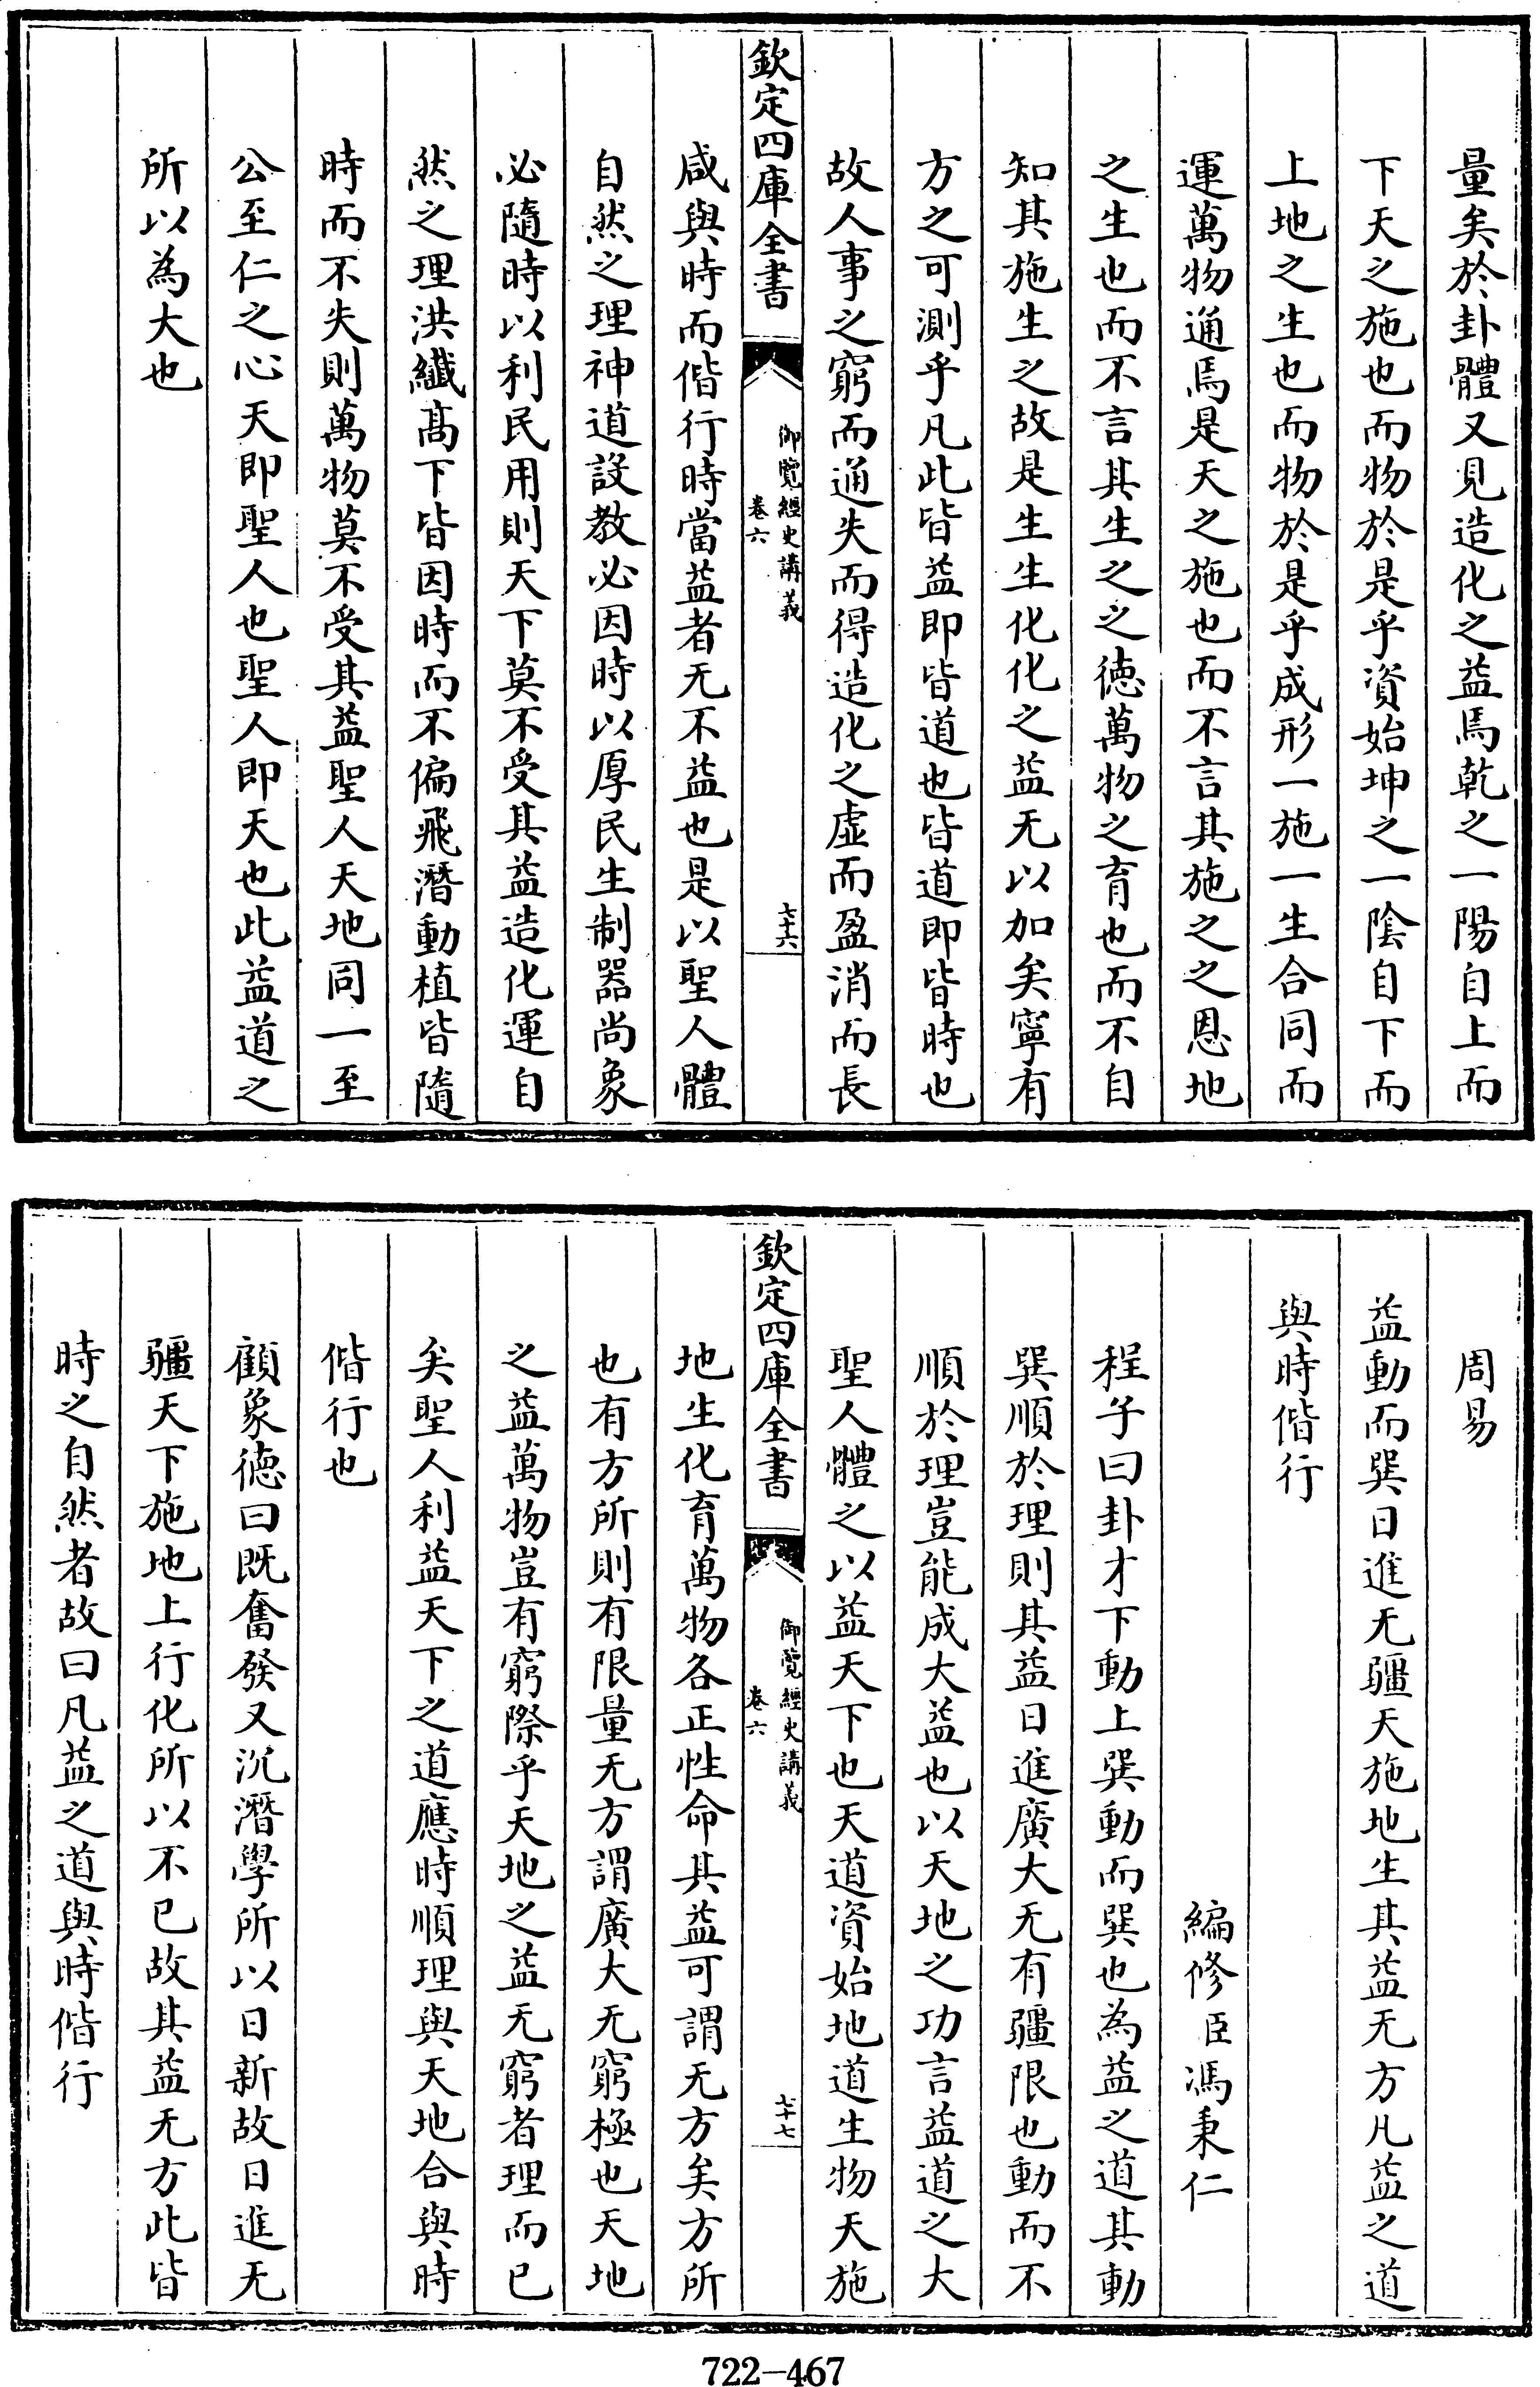 量矣於卦體又見造化之益焉乾之一陽自上而
下天之施也而物於是乎資始坤之一陰自下而
上地之生也而物於是乎成形一施一生合同而
運萬物通焉是天之施也而不言其施之之恩地
之生也而不言其生之之德萬物之育也而不自
知其施生之故是生生化化之益无以加矣寧有
方之可測乎凡此皆益即皆道也皆道即皆時也
故人事之窮而通失而得造化之虛而盈消而長
欽定四庫全書
御覽經史講義
卷六
七十六
咸與時而偕行時當益者无不益也是以聖人體
自然之理神道設教必因時以厚民生制器尚象
必隨時以利民用則天下莫不受其益造化運自
然之理洪纖髙下皆因時而不偏飛潛動植皆隨
時而不失則萬物莫不受其益聖人天地同一至
公至仁之心天即聖人也聖人即天也此益道之
所以為大也
周易
益動而巽日進无疆天施地生其益无方凡益之道
與時偕行
編修臣馮秉仁
程子曰卦才下動上巽動而巽也為益之道其動
巽順於理則其益日進廣大无有疆限也動而不
順於理豈能成大益也以天地之功言益道之大
聖人體之以益天下也天道資始地道生物天施
欽定四庫全書
御覽經史講義
卷六
七十七
地生化育萬物各正性命其益可謂无方矣方所
也有方所則有限量无方謂廣大无窮極也天地
之益萬物豈有窮際乎天地之益无窮者理而已
矣聖人利益天下之道應時順理與天地合與時
偕行也
顧象德曰既奮發又沉潛學所以日新故日進无
疆天下施地上行化所以不已故其益无方此皆
時之自然者故曰凡益之道與時偕行
722-467